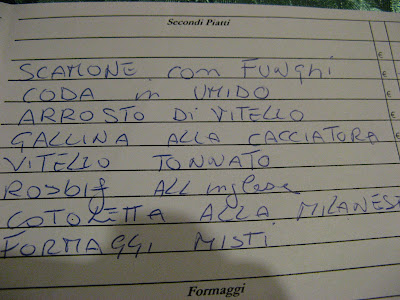 Secondi Piatti
€
SCAMONE con FUNGHI
€
CODA in UMIDO
€
ARROSTO DI VITELLO
€
GALLINA ALLA CACCIATORA
€
VITELLO TONNATO
ROSbif ALL inglese
COTOLETTA ALLA MILANES
FORMAGGI MISTI
Formaggi